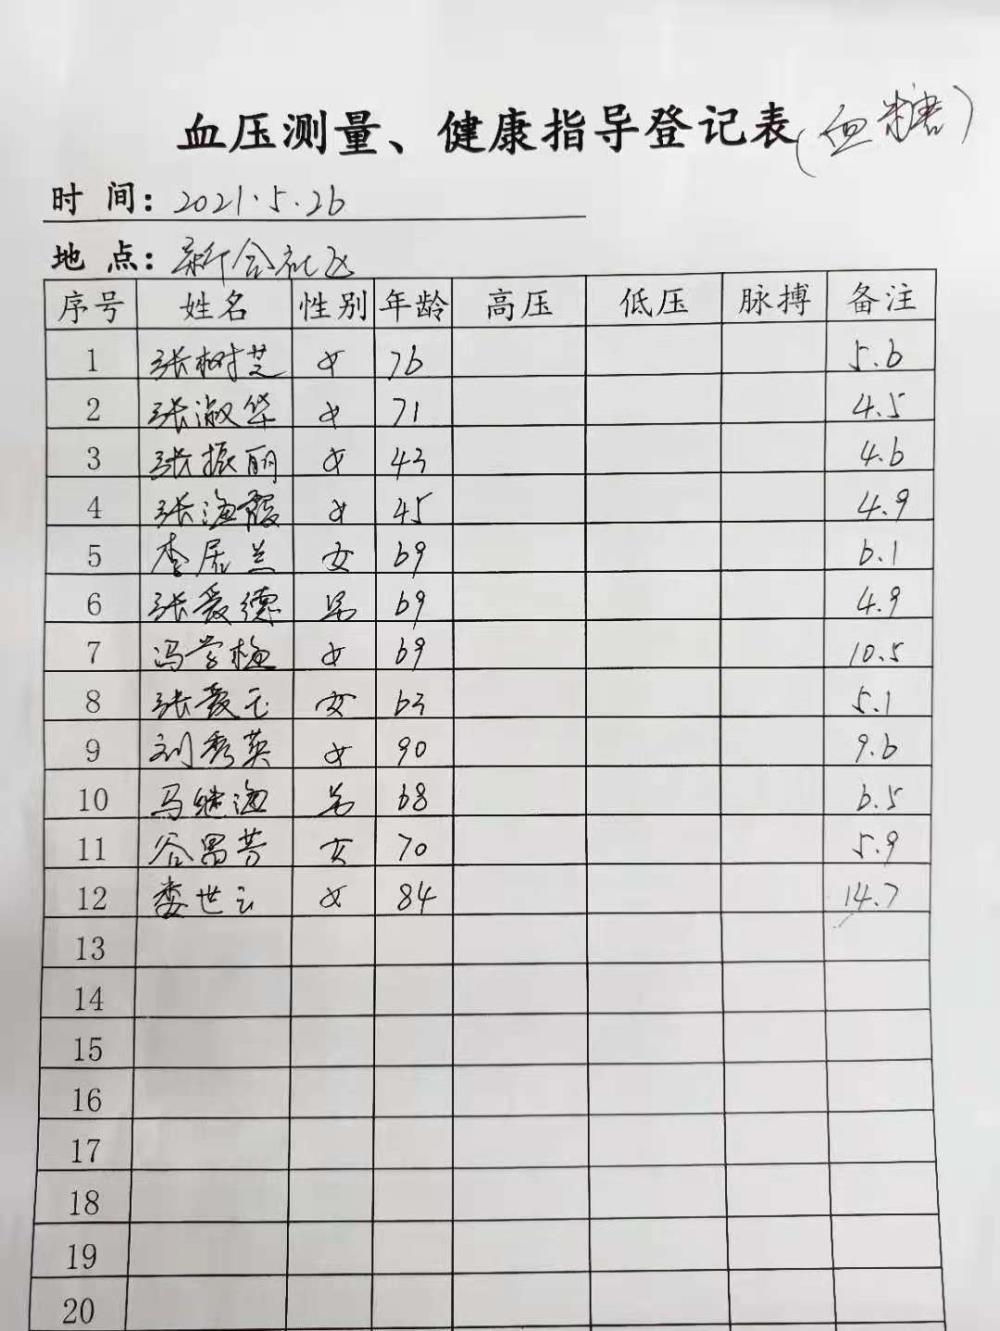 血压测量、健康指导登记表(血糖)
时 间：2021.5.26
地 点：新合社区
序号 姓名 性别 年龄 高压 低压 脉搏 备注
1 张树芝 女 76 5.6
2 张淑华 女 71 4.5
3 张振丽 女 43 4.6
4 张海霞 女 45 4.9
5 李居兰 女 69 6.1
6 张爱德 男 69 4.9
7 冯学梅 女 69 10.5
8 张爱云 女 63 5.1
9 刘秀英 女 90 9.6
10 马继海 男 68 6.5
11 谷昌芳 女 70 5.9
12 娄世云 女 84 14.7
13
14
15
16
17
18
19
20